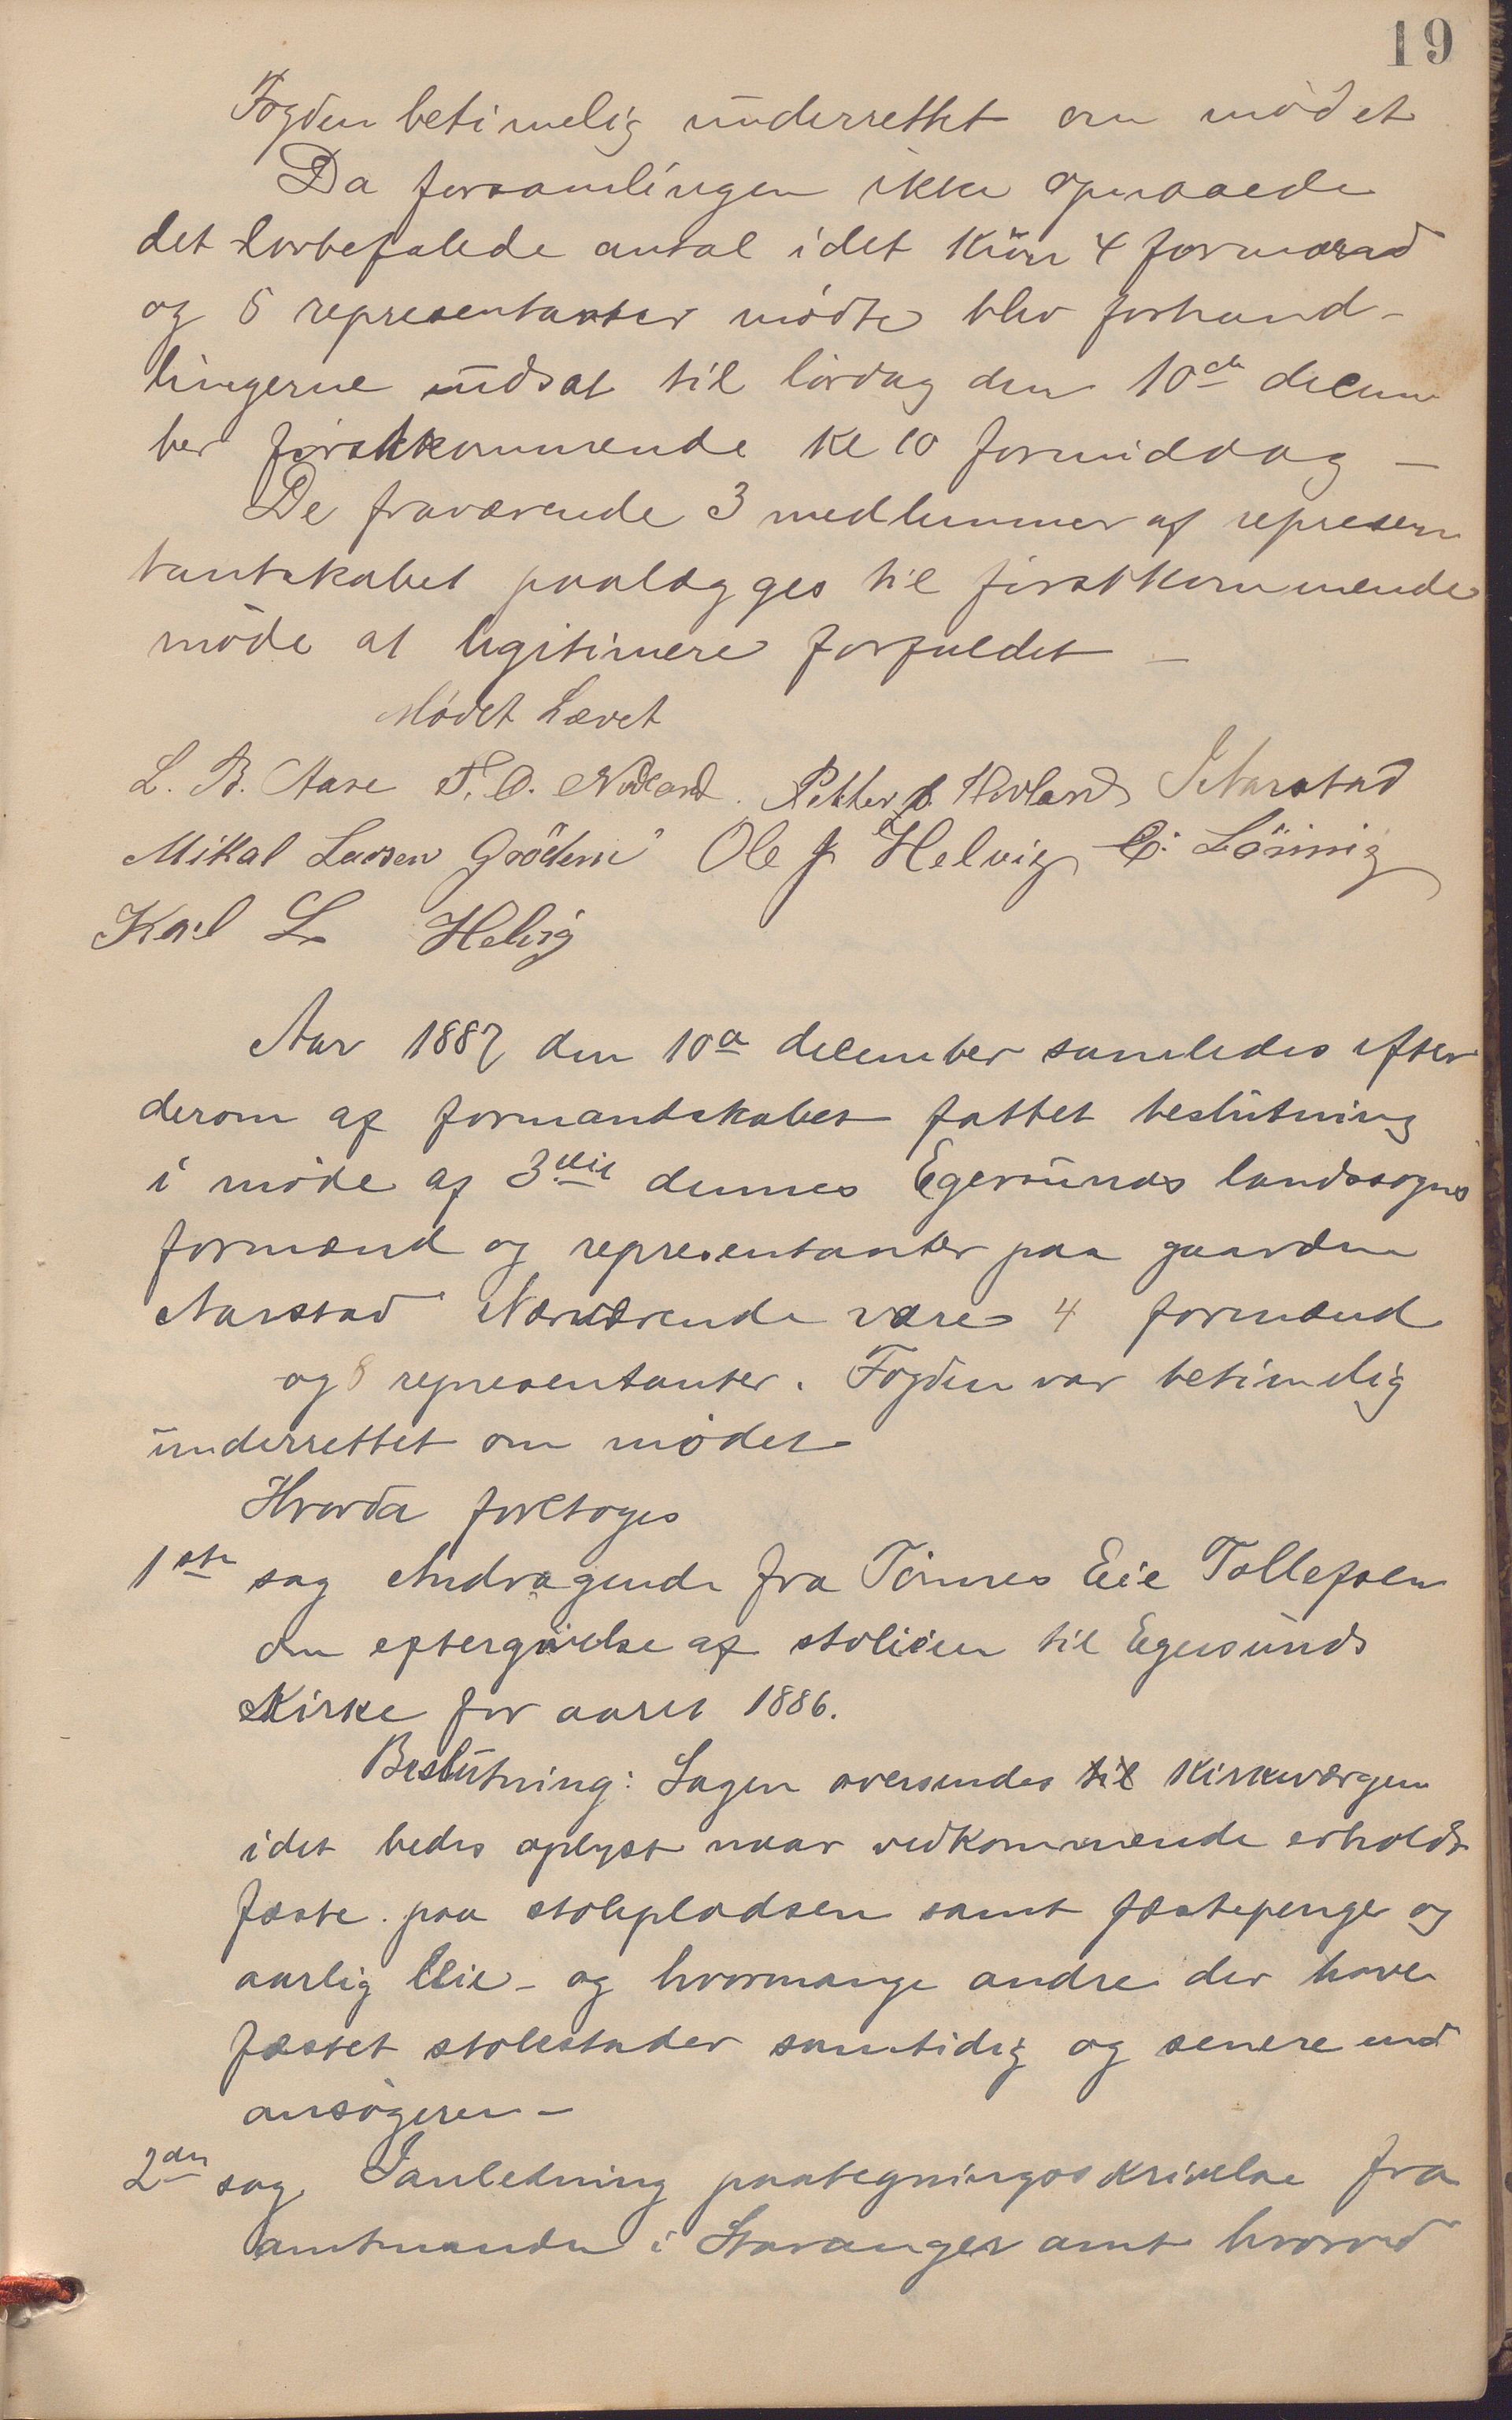 19
Fogden betimelig underrettet om mødet
Da forsamlingen ikke opnaaede
det lovbefalede antal idet kun 4 formænd
og 5 representanter mødte blev forhand-
lingerne udsat til lørdag den 10de decem
ber førstkommende kl 10 formiddag —
De fraværende 3 medlemmer af represen
tantskabet paalægges til førstkommende
møde at legitimere forfaldet —
Mødet hævet
L. B. Aase T. O. Nodland. Petter Hovland Aarstad
Mikal Larsen Grødem Ole J Helvig C. Lønnig
Karl L Helvig
Aar 1887 den 10de december samledes efter
derom af formandskabet fattet beslutning
i møde af 3die dennes Egersunds landssogns
formænd og representanter paa gaarden
Aarstad Nærværende vare 4 formænd
og 8 representanter. Fogden var betimelig
underrettet om mødet
Hvorda foretoges
1ste sag Andragende fra Tønnes Eie Tollefsen
om eftergivelse af stoleien til Egersunds
Kirke for aaret 1886.
Beslutning: Sagen oversendes til kirkeværgen
idet bedes oplyst naar vedkommende erholdt
fæste paa stolepladsen samt fæstepenge og
aarlig leie - og hvormange andre der have
fæstet stolestader samtidig og senere end
ansøgeren —
2den sag I anledning paategningsskrivelse fra
amtmanden i Stavanger amt hvorved